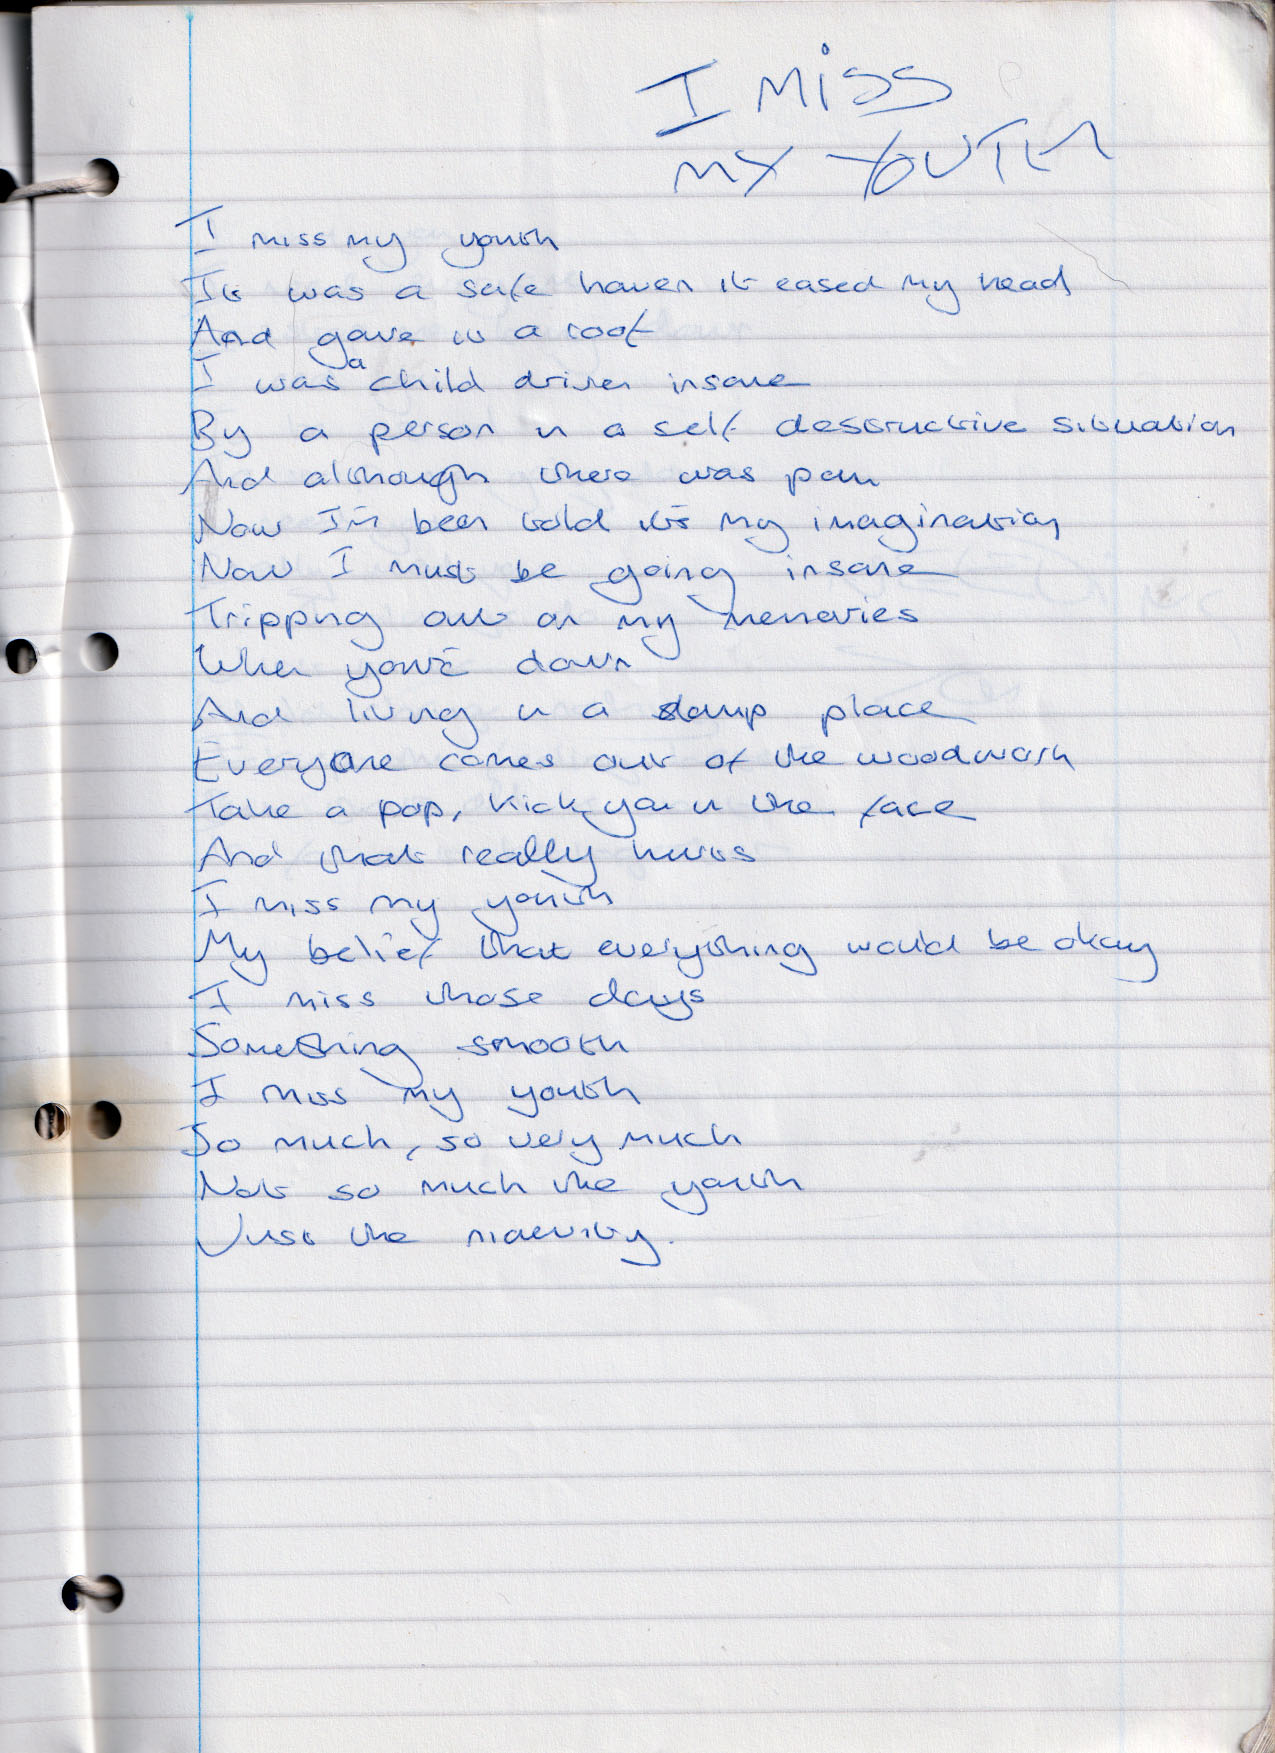 I MISS
MY YOUTH
I miss my youth
It was a safe haven it eased my head
And gave it a roof
I was a child driven insane
By a person in a self destructive situation
And although there was pain
Now I've been told it's my imagination
Now I must be going insane
Tripping out on my memories
When you're down
And living in a damp place
Everyone comes out of the woodwork
Take a pop, kick you in the face
And that really hurts
I miss my youth
My belief that everything would be okay
I miss those days
Something smooth
I miss my youth
So much, so very much
Not so much the youth
Just the